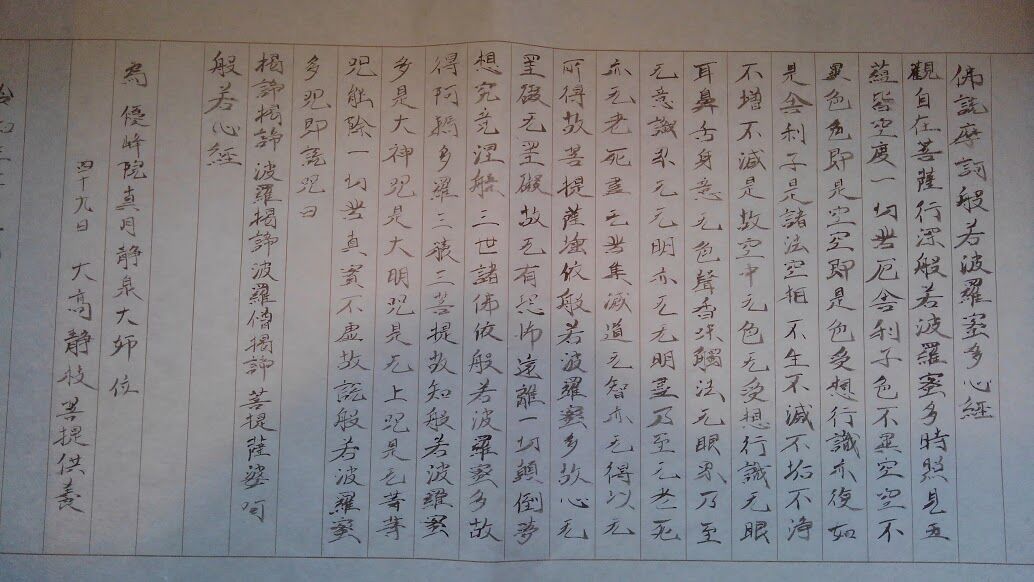 佛説摩訶般若波羅蜜多心經
觀自在菩薩行深般若波羅蜜多時照見五
蘊皆空度一切苦厄舎利子色不異空空不
異色色即是空空即是色受想行識亦復如
是舎利子是諸法空相不生不滅不垢不浄
不増不減是故空中无色无受想行識无眼
耳鼻舌身意无色聲香味觸法无眼界乃至
无意識界无无明亦无无明盡乃至无老死
亦无老死盡无苦集滅道无智亦无得以无
所得故菩提薩埵依般若波羅蜜多故心无
罣礙无罣礙故无有恐怖遠離一切顛倒夢
想究竟涅槃三世諸佛依般若波羅蜜多故
得阿耨多羅三藐三菩提故知般若波羅蜜
多是大神呪是大明呪是无上呪是无等等
呪能除一切苦真實不虚故説般若波羅蜜
多呪即説呪曰
揭諦揭諦 波羅揭諦 波羅僧揭諦 菩提薩婆呵
般若心經
為 優峰院真月静泉大姉 位
四十九日 大高静枝 菩提供養